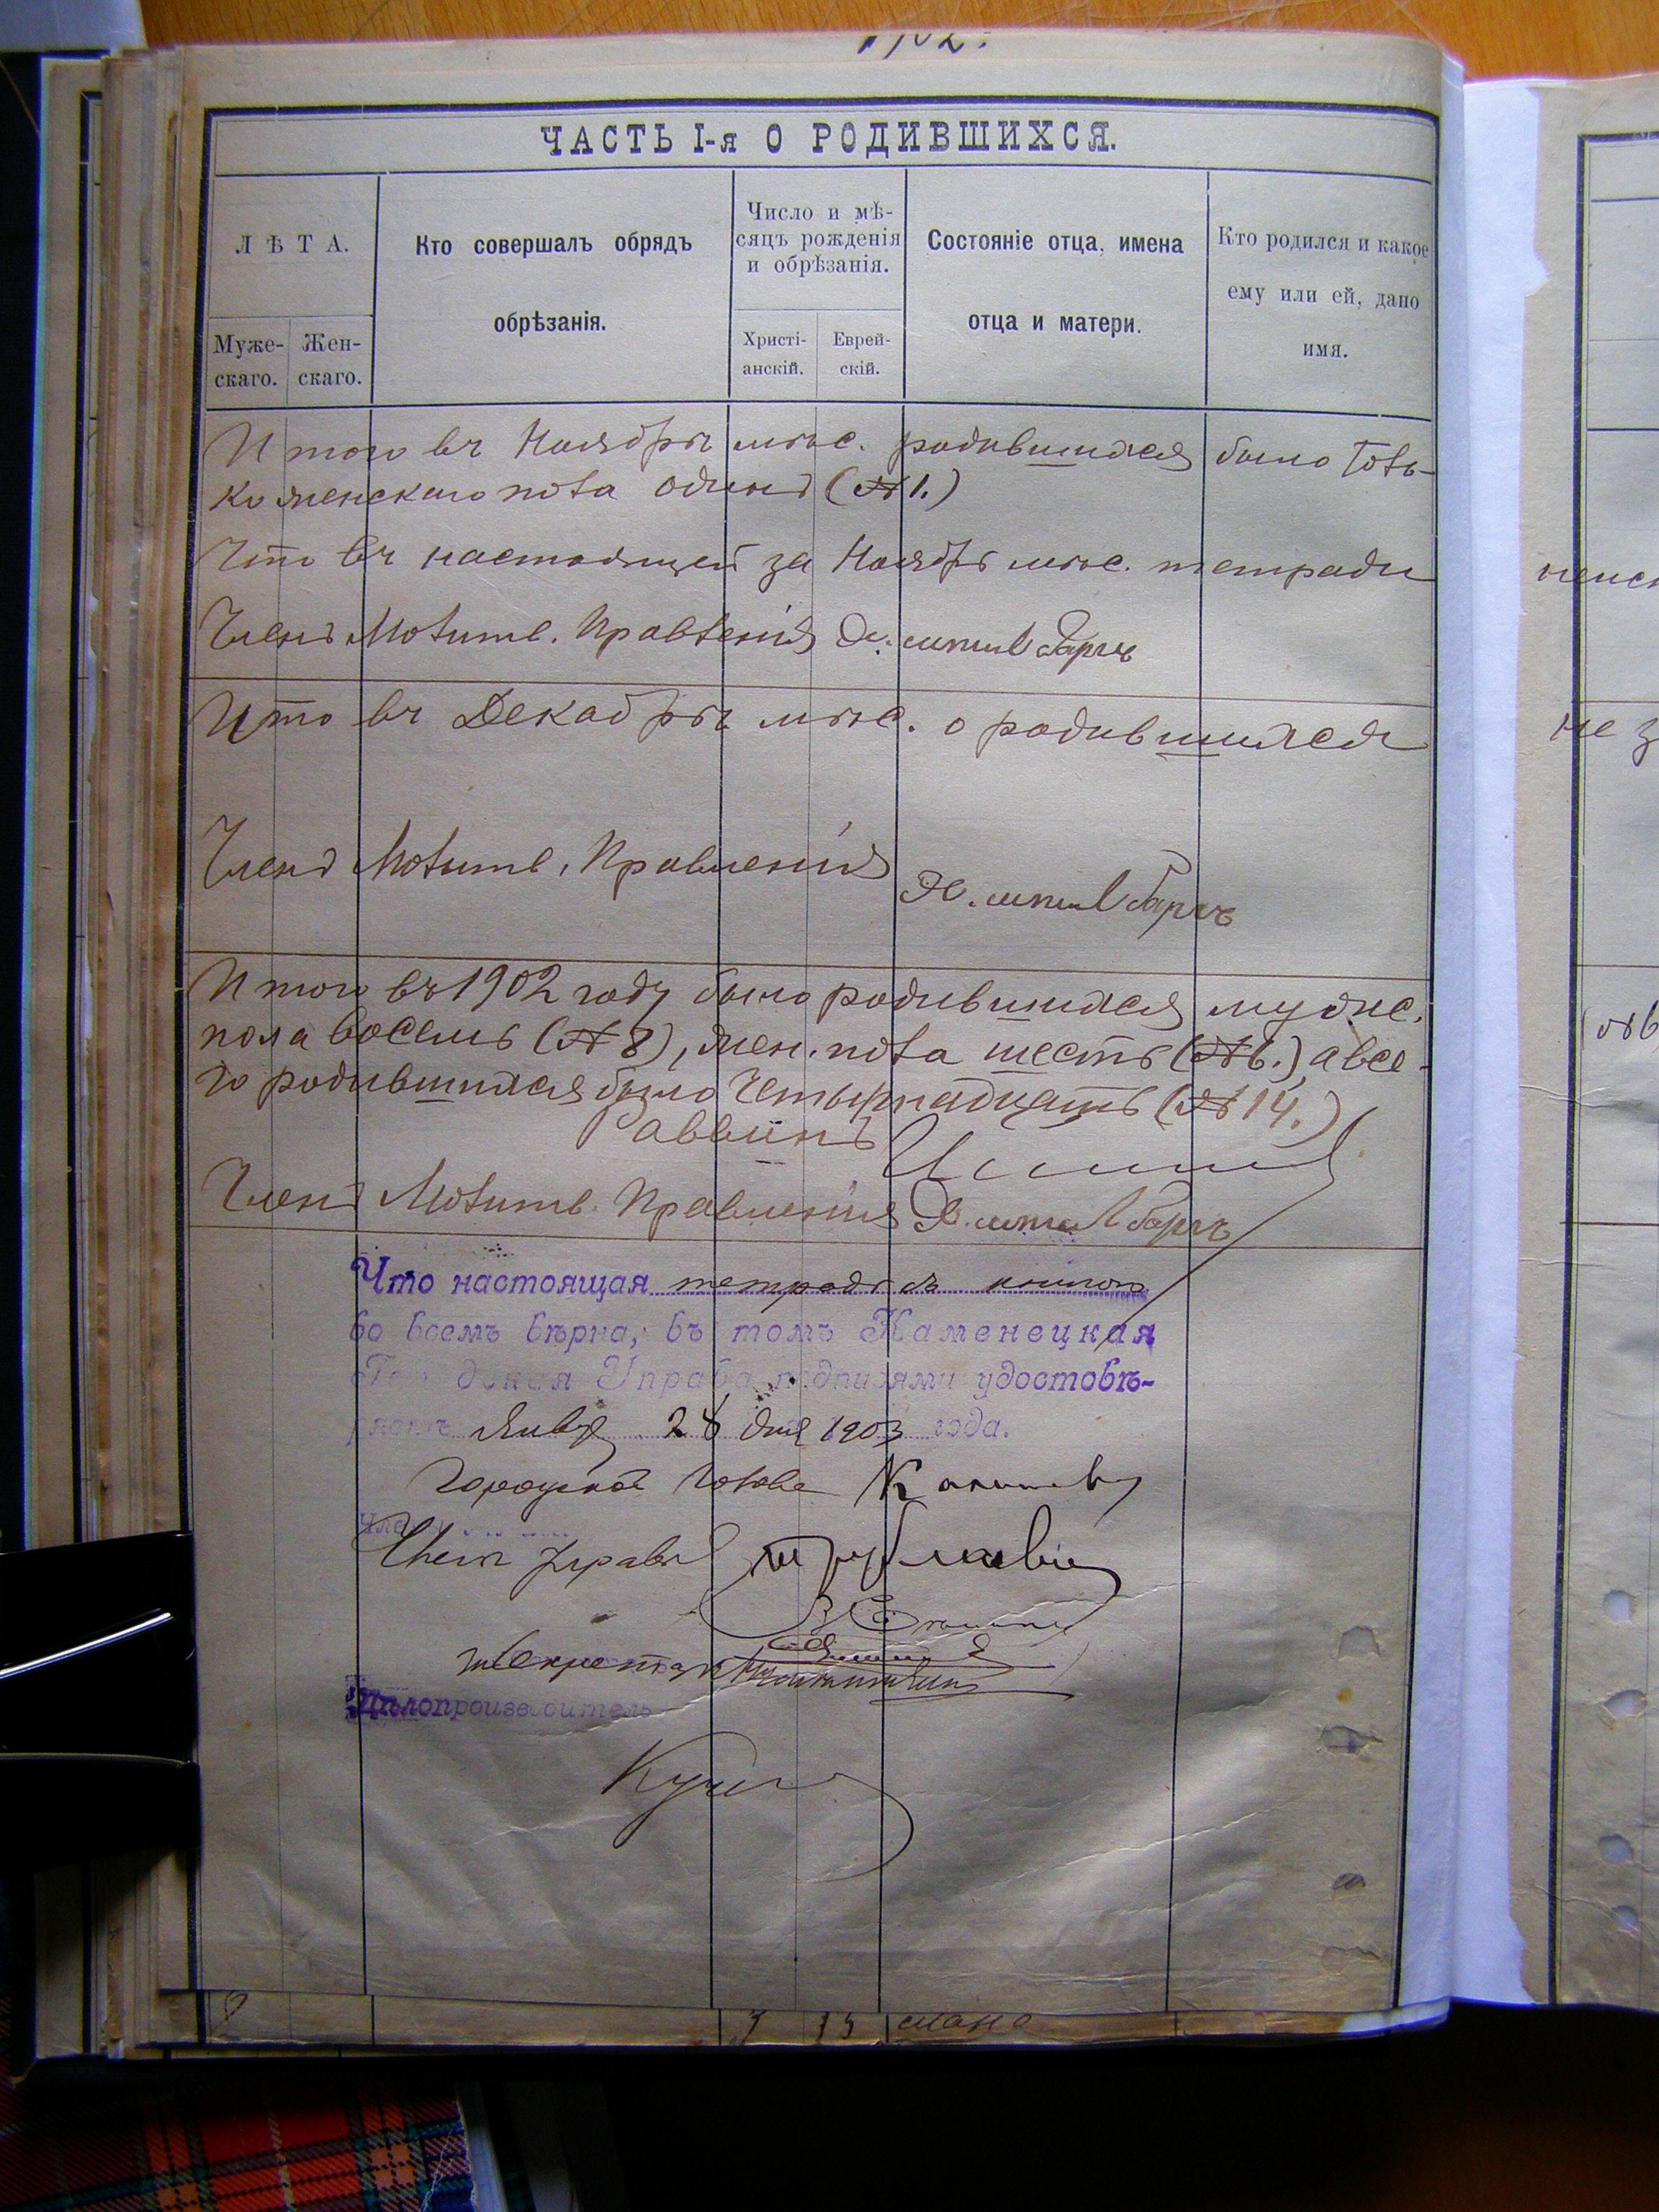 1902.
ЧАСТЬ I-я О РОДИВШИХСЯ.
ЛѢТА.
Мужескаго.
Женскаго.
Кто совершалъ обрядъ
обрѣзанія.
Число и мѣ-
сяцъ рожденія
и обрѣзанія.
Христі-
анскій.
Еврей-
скій.
Состояніе отца, имена
отца и матери.
Кто родился и какое
ему или ей, дано
имя.
Итого въ Ноябрѣ мѣс. родившихся было толь-
ко женскаго пола одинъ (№ 1.)
Что въ настоящей за Ноябрь мѣс. тетради
Членъ Молитв. Правленія
Что въ Декабрѣ мѣс. о родившихся
Членъ Молитв. Правленія
Итого въ 1902 году было родившихся мужс.
пола восемь (№ 8), жен. пола шесть (№ 6.), а все-
го родившихся было четырнадцать (№ 14.)
Раввинъ
Членъ Молитв. Правленія
Что настоящая тетрадь съ
во всемъ вѣрна, въ томъ Каменецкая
Городская Управа подписями удостовѣ-
ряетъ Январ 28 дня 1903 года.
Городской Голова
Членъ Управы
Секретарь
Дѣлопроизводитель
не з